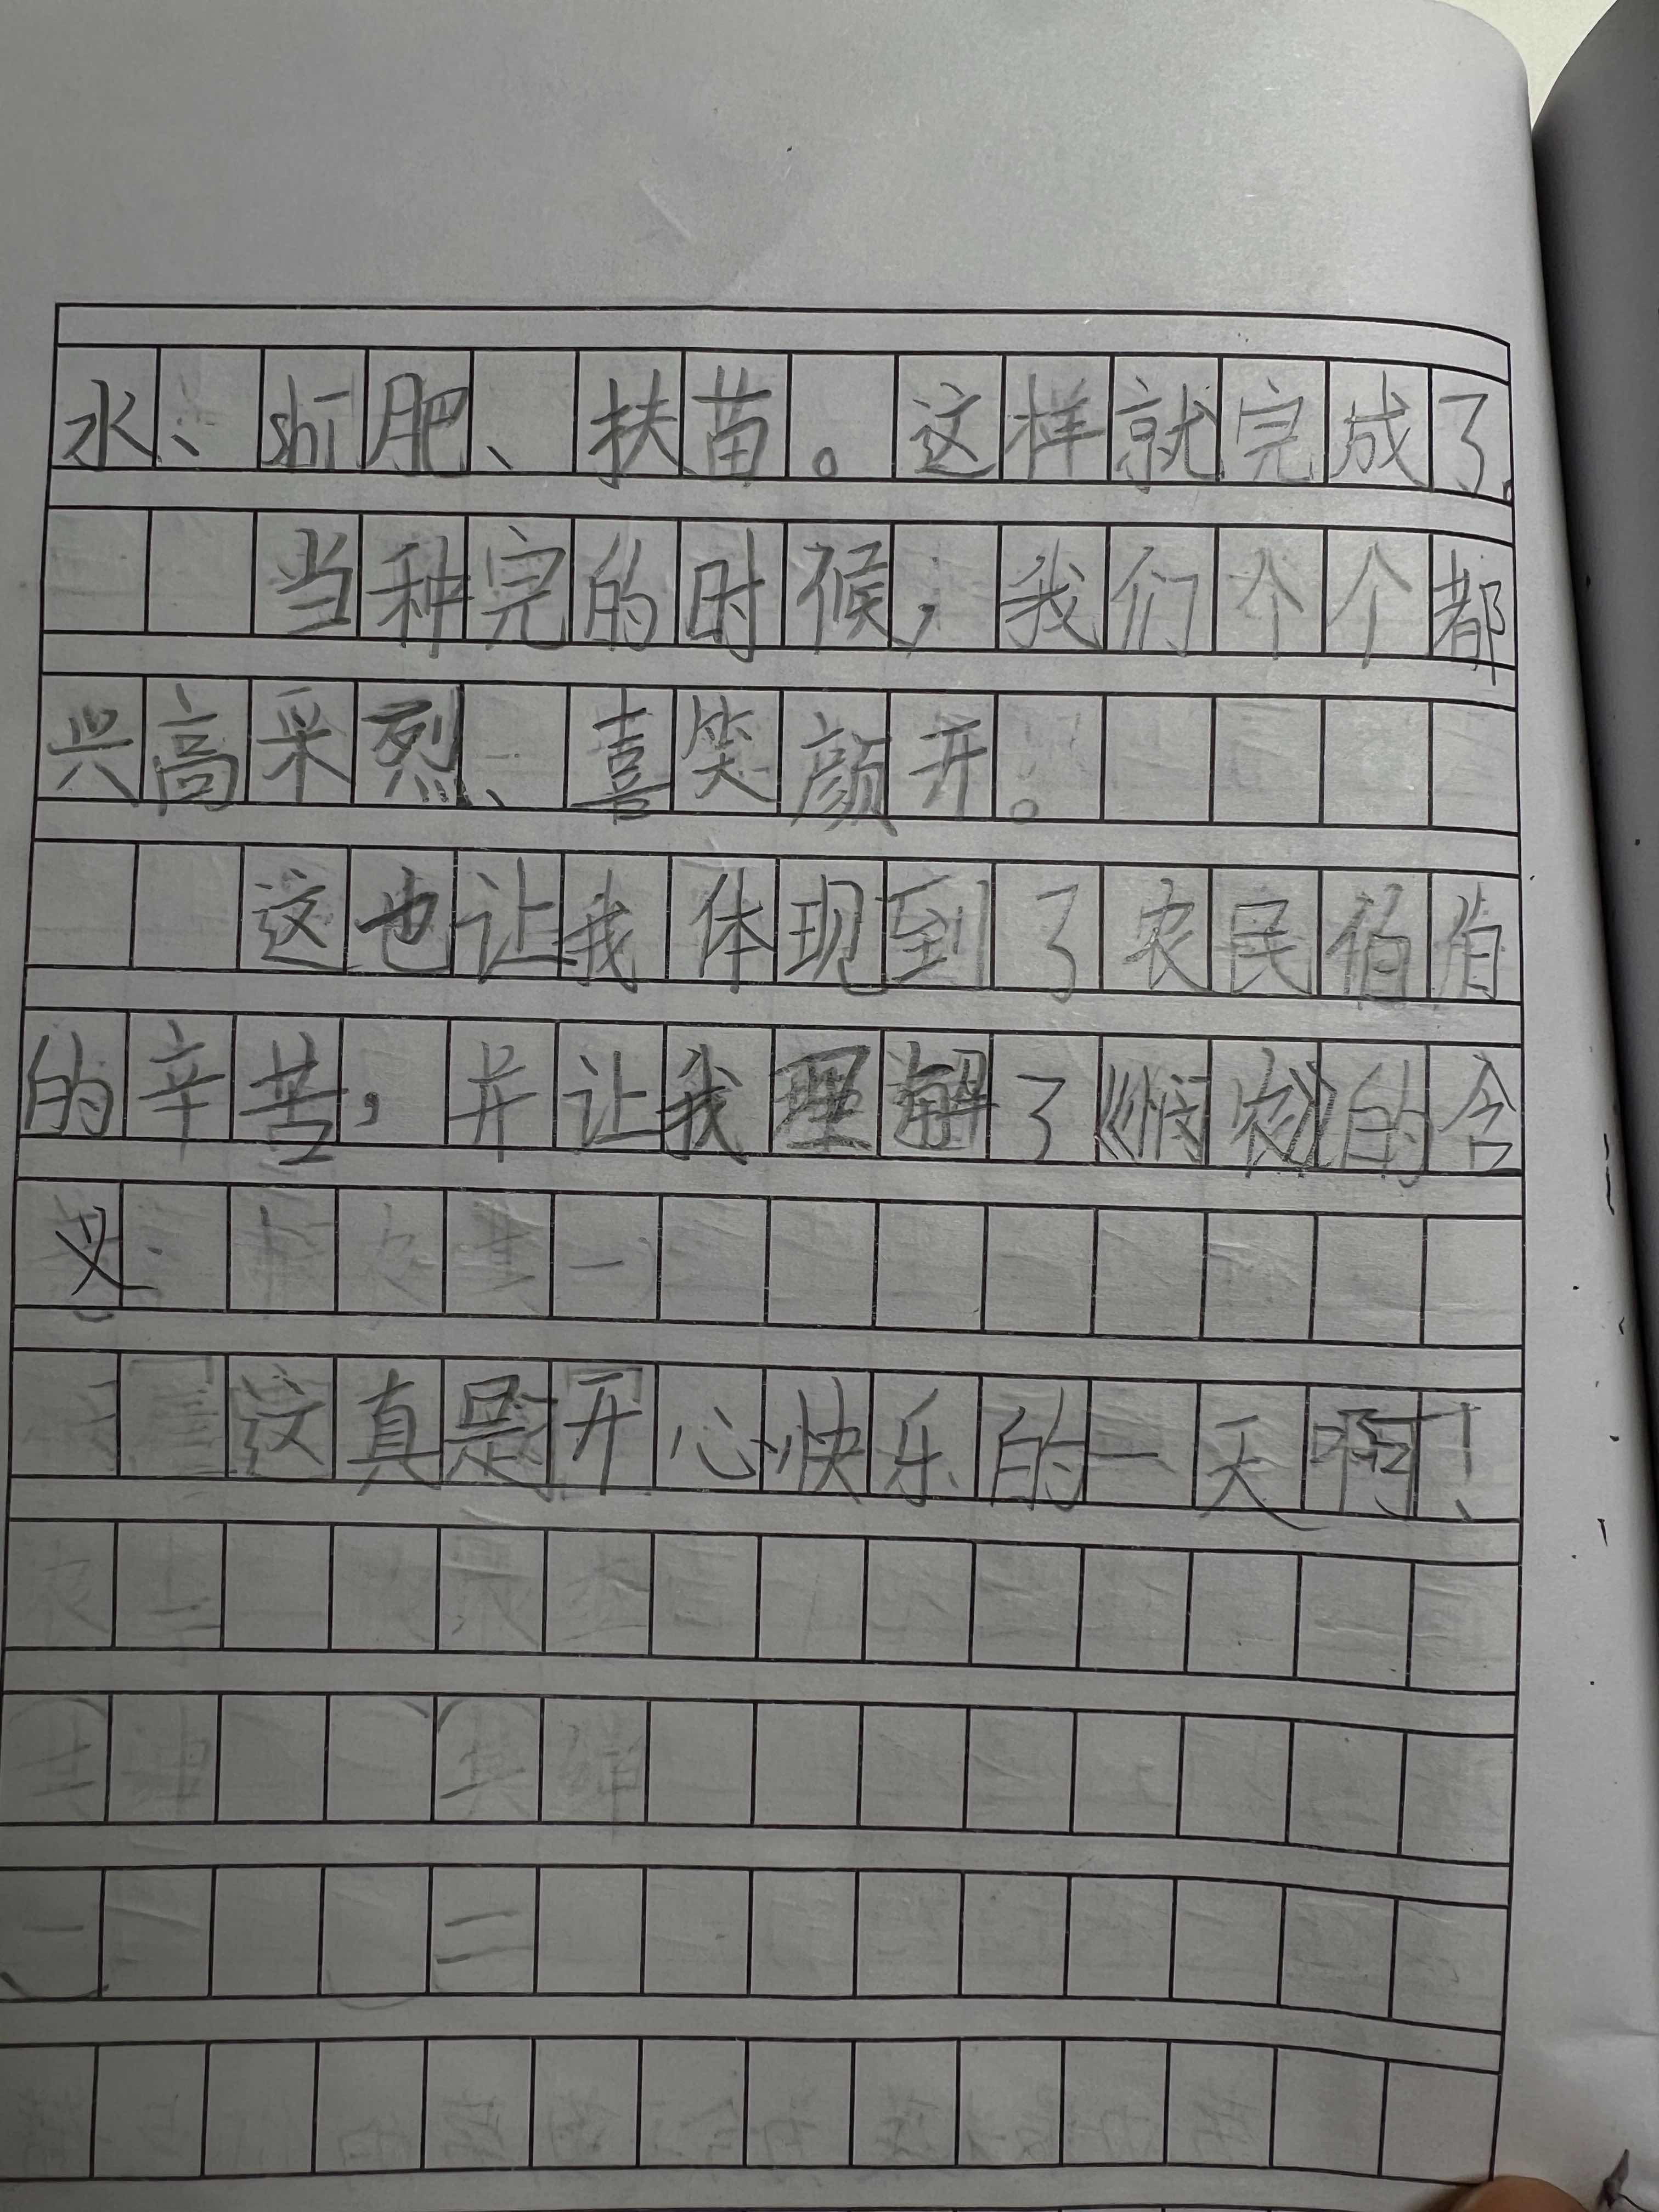 水、shī肥、扶苗。这样就完成了.
当种完的时候，我们个个都
兴高采烈、喜笑颜开。
这也让我体现到了农民伯伯
的辛苦，并让我理解了《悯农》的含
义。
这真是开心快乐的一天啊！